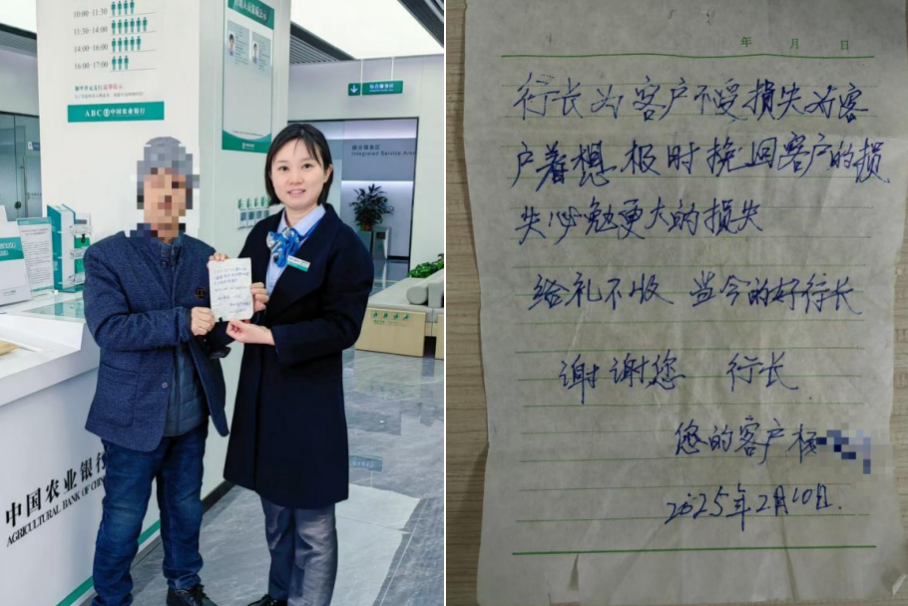 10:00-11:30
11:30-14:00
14:00-16:00
16:00-17:00
ABC 中国农业银行
Integrated Service Area
中国农业银行
AGRICULTURAL BANK OF CHINA
年 月 日
行长为客户不受损失为客
户着想 极时挽回客户的损
失必勉更大的损失
给礼不收 当今的好行长
谢谢您 行长
您的客户 杨
2025年2月10日.